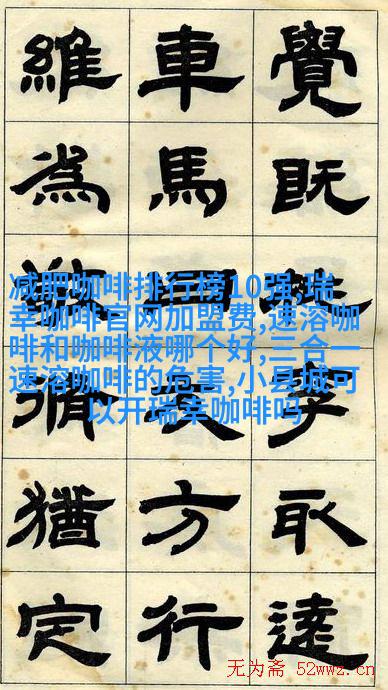 覺既李取達
車馬方行
維為猶定
减肥咖啡排行榜10强,瑞
幸咖啡官网加盟费,速溶咖
啡和咖啡液哪个好,三合一
速溶咖啡的危害,小县城可
以开瑞幸咖啡吗
无为斋 52wwz.cn